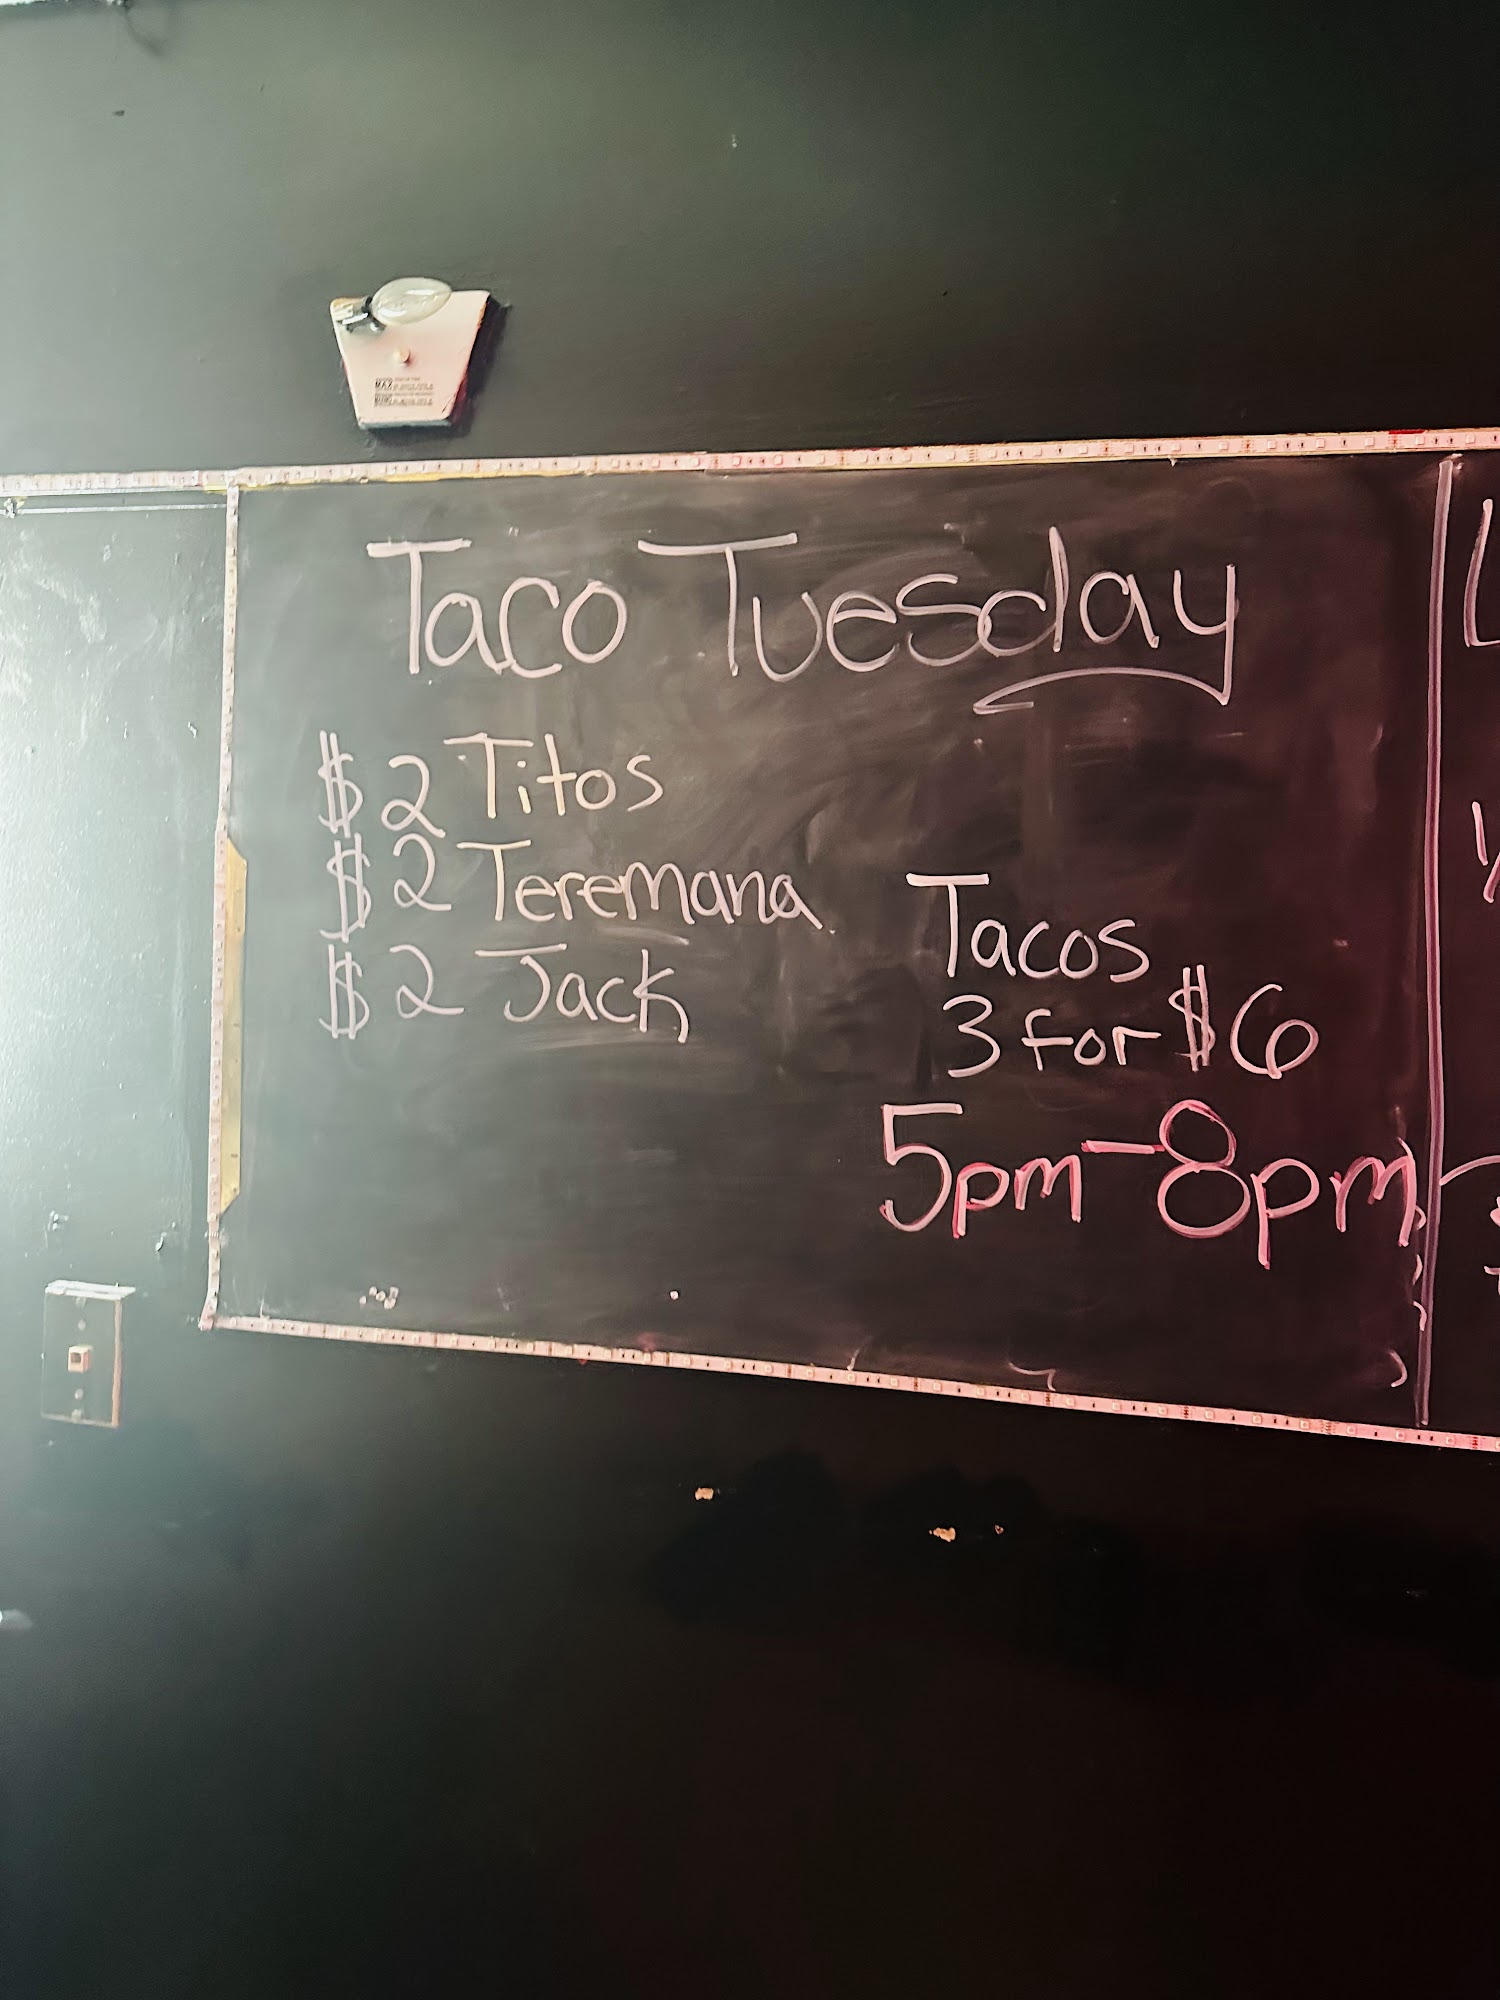 Taco Tuesday
$2 Titos
$2 Teremana
$2 Jack
Tacos
3 for $6
5pm-8pm